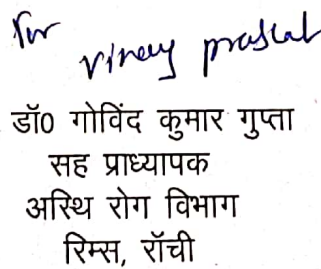 for
vinay prasad
डॉ0 गोविंद कुमार गुप्ता
सह प्राध्यापक
अस्थि रोग विभाग
रिम्स, रॉची